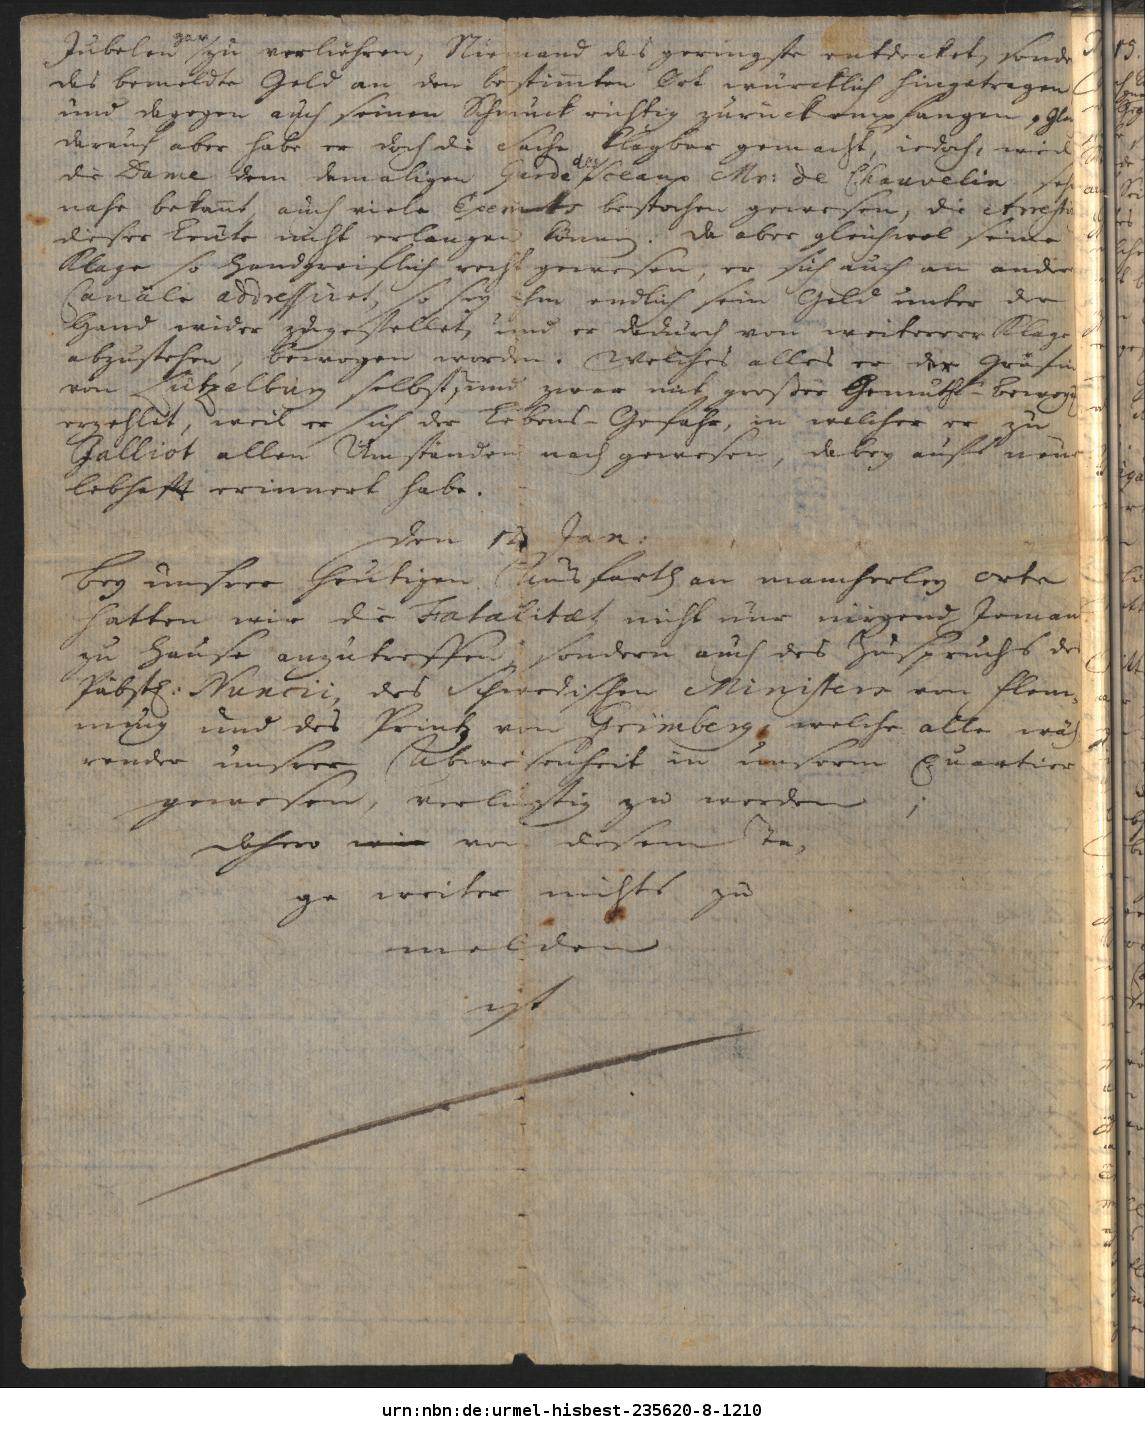 Jubelen gar zu verliehren, Niemand das geringste entdecket, sonde
das bemeldte Geld an den bestim̄ten Ort würcklich hingetragen
und dagegen auch seinen Schmuck richtig zurück empfangen,
darauf aber habe er doch die Sache klagbar gemacht, iedoch, weil
die Dame dem damaligen Garde des Sceaux Mr: de Chauvelin seh
nahe bekan̄t, auch viele Exemts bestochen gewesen, die Arresti
dieser Leute nicht erlangen können. Da aber gleichwol seine
Klage so handgreiflich recht gewesen, er sich auch an andere
Canäle addressiret, so sey ihm endlich sein Geld unter der
Hand wider zugestellet, und er dadurch von weiterer Klage
abzustehen, bewogen worden. Welches alles er der Gräfin
von Lützelburg selbst, und zwar mit großer Gemüths-Beweg
erzehlet, weil er sich der Lebens-Gefahr, in welcher er zu
Galliot allen Umständen nach gewesen, dabey aufs neue
lebhafft erinnert habe.
den 14 Jan:
Bey unserer heutigen Ausfarth an mancherley orte
hatten wir die Fatalitæt nicht nur nirgend Jeman
zu Hause anzutreffen, sondern auch des Zuspruchs des
Päbstl: Nuncii, des Schwedischen Ministers von Flem-
ming und des Printz von Grimberg, welche alle wäh
render unserer Abwesenheit in unserm Quartier
gewesen, verlustig zu werden;
daher wir von diesem Ta-
ge weiter nichts zu
melden
ist
urn:nbn:de:urmel-hisbest-235620-8-1210